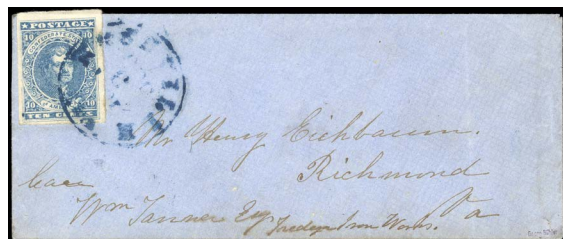 POSTAGE
10 10
CONFEDERATE
10 10
TEN CENTS
Mr Henry Eichbaum.
Richmond
Va
Care
Wm Tanner Esq
Tredegar Iron Works.